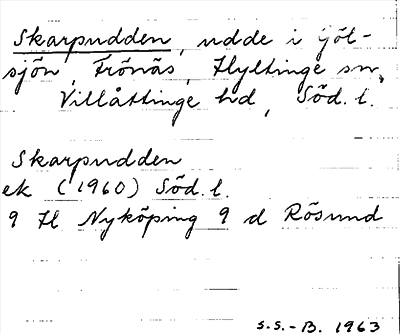 Skarpudden, udde i Göt-
sjön, Frönäs, Hyltinge sn,
Villåttinge hd, Söd. l.
Skarpudden
ek (1960) Söd. l.
9 H Nyköping 9 d Rösund
S.S.-B. 1963